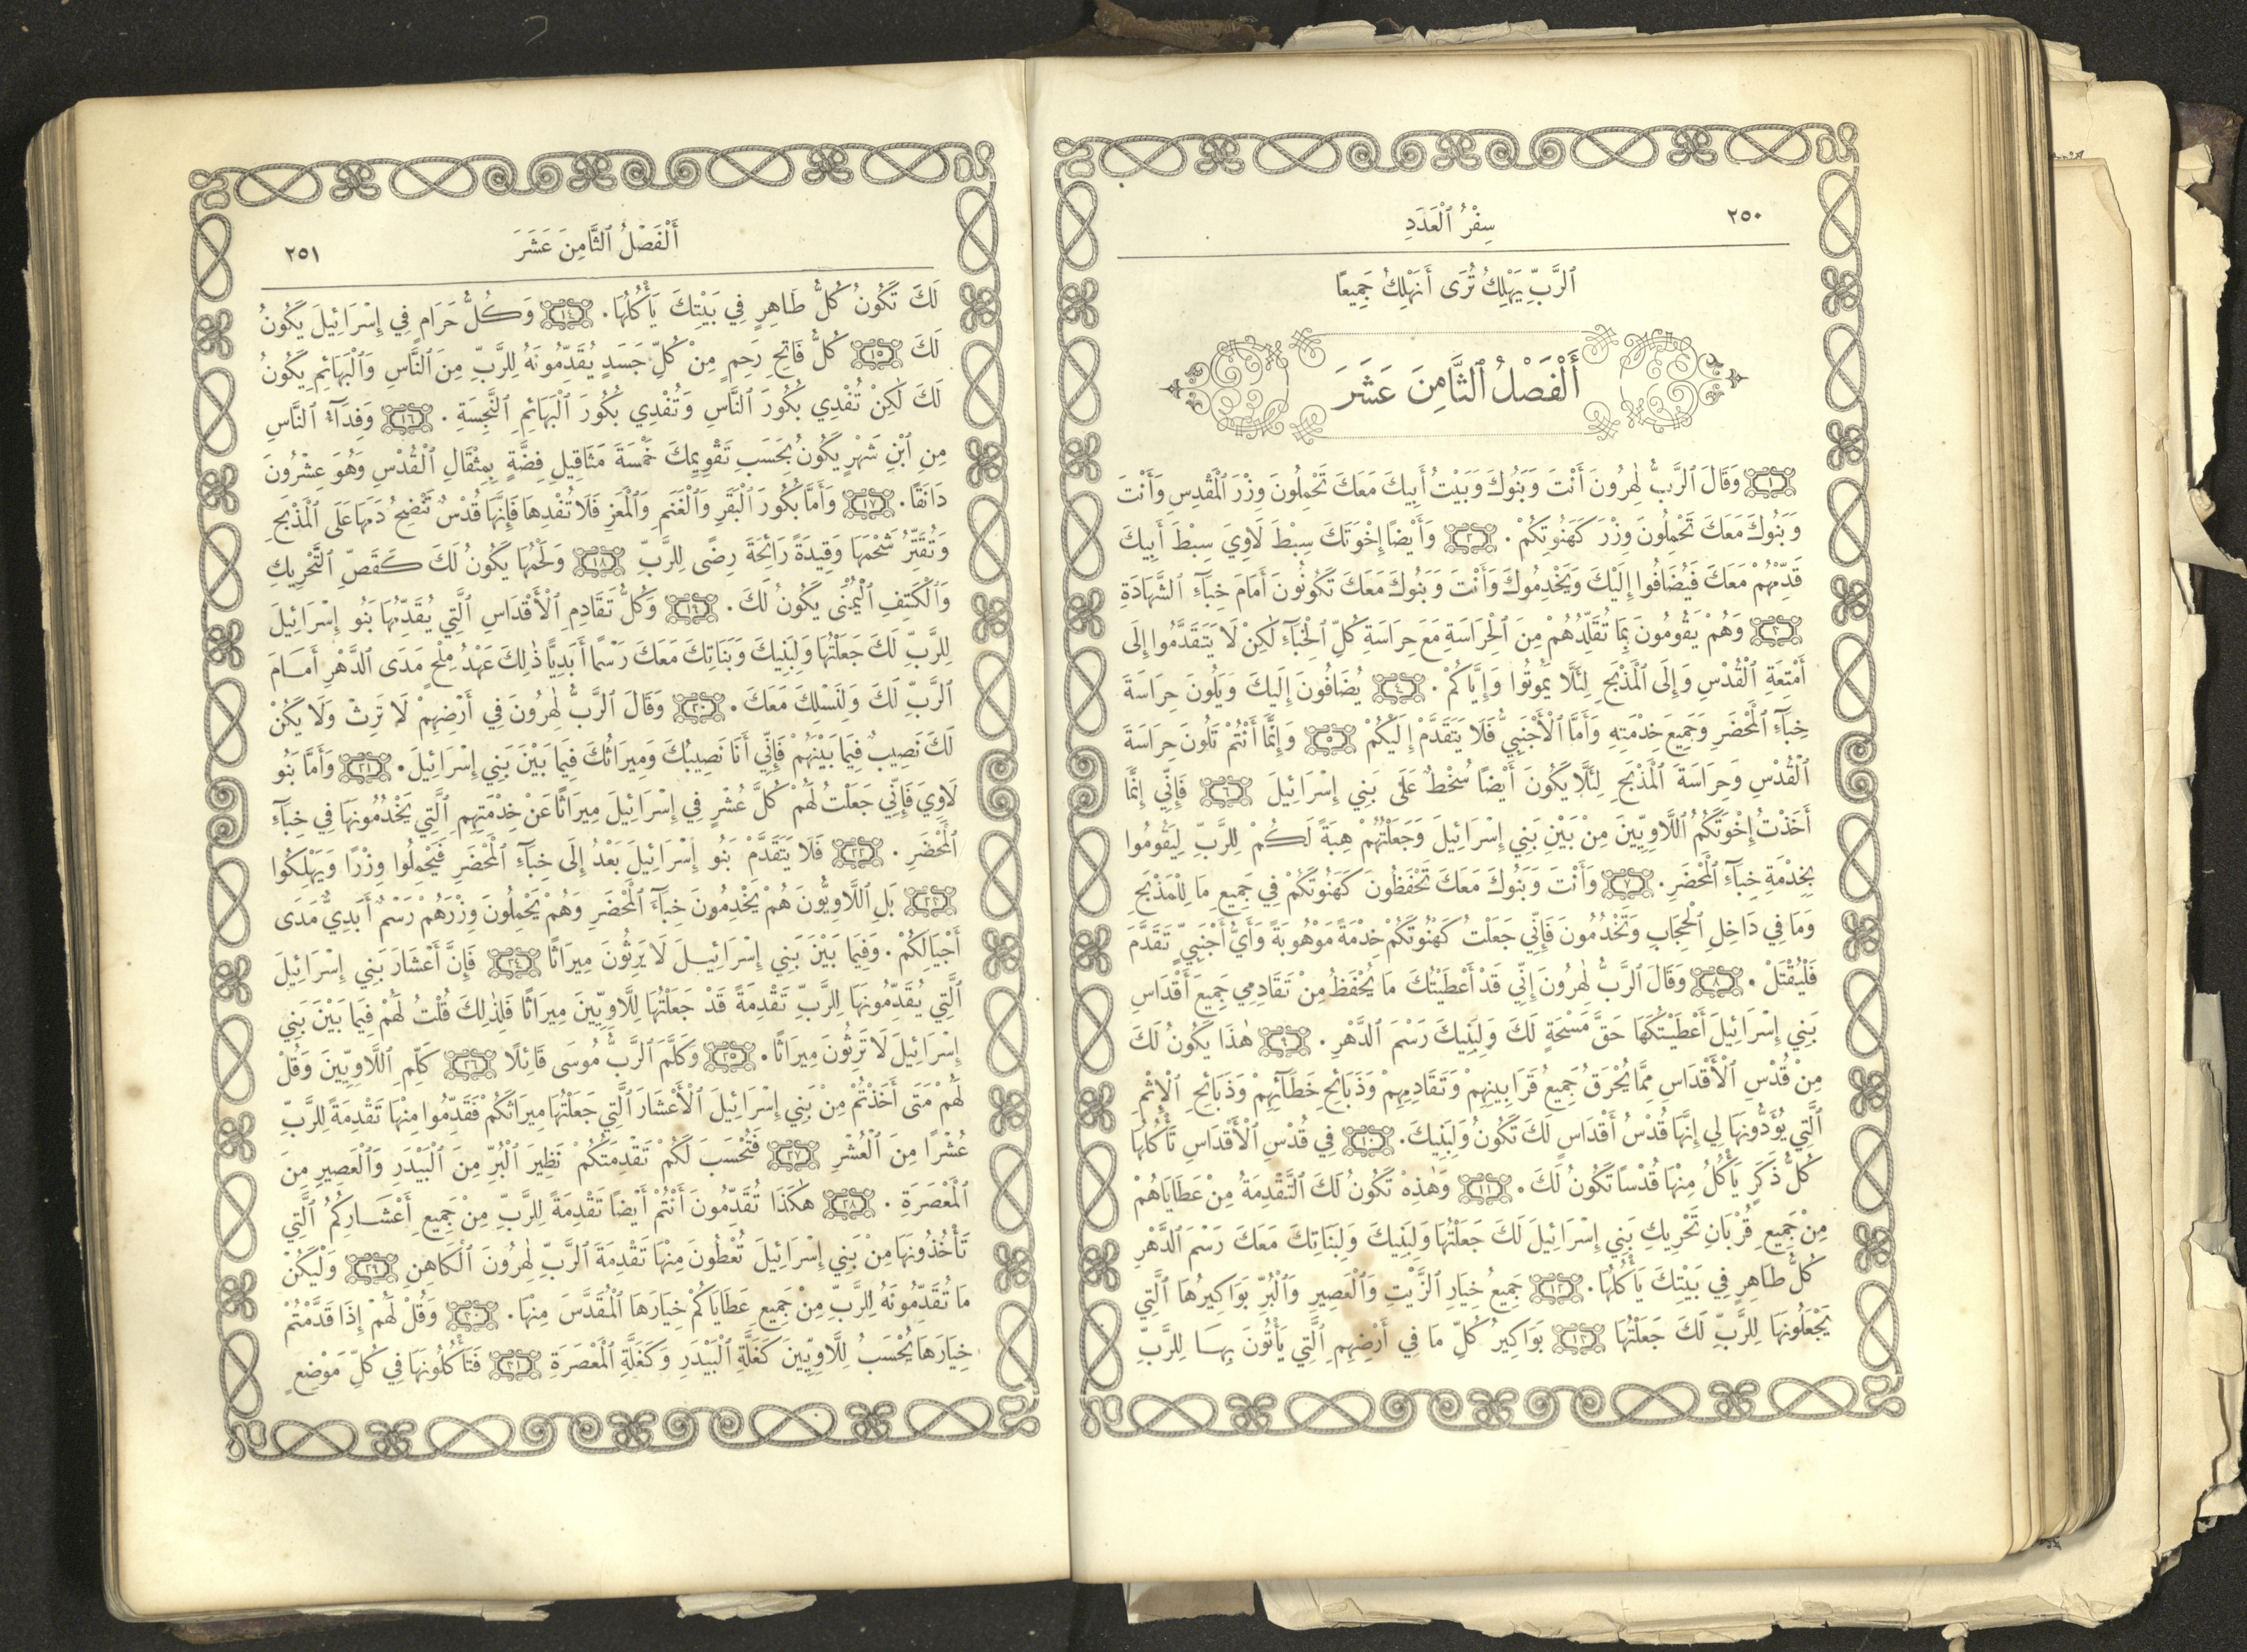 ٢٥٠
سِفْرُ ٱلْعَدَدِ
ٱلرَّبِّ يَهْلِكُ تُرَى أَنَهْلِكُ جَمِيعًا
أَلْفَصْلُ ٱلثَّامِنَ عَشَرَ
١ وَقَالَ ٱلرَّبُّ لِهٰرُونَ أَنْتَ وَبَنُوكَ وَبَيْتُ أَبِيكَ مَعَكَ تَحْمِلُونَ وِزْرَ ٱلْمَقْدِسِ وَأَنْتَ
وَبَنُوكَ مَعَكَ تَحْمِلُونَ وِزْرَ كَهَنُوتِكُمْ . ٢ وَأَيْضًا إِخْوَتَكَ سِبْطَ لَاوِيَ سِبْطَ أَبِيكَ
قَدِّمْهُمْ مَعَكَ فَيُضَافُوا إِلَيْكَ وَيَخْدِمُوكَ وَأَنْتَ وَبَنُوكَ مَعَكَ تَكُونُونَ أَمَامَ خِبَآءِ ٱلشَّهَادَةِ
٣ وَهُمْ يَقُومُونَ بِمَا تُقَلِّدُهُمْ مِنَ ٱلْحِرَاسَةِ مَعَ حِرَاسَةِ كُلِّ ٱلْخِبَآءِ لٰكِنْ لَا يَتَقَدَّمُوا إِلَى
أَمْتِعَةِ ٱلْقُدْسِ وَإِلَى ٱلْمَذْبَحِ لِئَلَّا يَمُوتُوا وَإِيَّاكُمْ . ٤ يُضَافُونَ إِلَيْكَ وَيَلُونَ حِرَاسَةَ
خِبَآءِ ٱلْمَحْضَرِ وَجَمِيعَ خِدْمَتِهِ وَأَمَّا ٱلْأَجْنَبِيُّ فَلَا يَتَقَدَّمْ إِلَيْكُمْ ٥ وَإِنَّمَا أَنْتُمْ تَلُونَ حِرَاسَةَ
ٱلْقُدْسِ وَحِرَاسَةَ ٱلْمَذْبَحِ لِئَلَّا يَكُونَ أَيْضًا سُخْطٌ عَلَى بَنِي إِسْرَائِيلَ ٦ فَإِنِّي إِنَّمَا
أَخَذْتُ إِخْوَتَكُمُ ٱللَّاوِيِّينَ مِنْ بَيْنِ بَنِي إِسْرَائِيلَ وَجَعَلْتُهُمْ هِبَةً لَكُمْ لِلرَّبِّ لِيَقُومُوا
بِخِدْمَةِ خِبَآءِ ٱلْمَحْضَرِ . ٧ وَأَنْتَ وَبَنُوكَ مَعَكَ تَحْفَظُونَ كَهَنُوتَكُمْ فِي جَمِيعِ مَا لِلْمَذْبَحِ
وَمَا فِي دَاخِلِ ٱلْحِجَابِ وَتَخْدُمُونَ فَإِنِّي جَعَلْتُ كَهَنُوتَكُمْ خِدْمَةً مَوْهُوبَةً وَأَيُّ أَجْنَبِيٍّ تَقَدَّمَ
فَلْيُقْتَلْ . ٨ وَقَالَ ٱلرَّبُّ لِهٰرُونَ إِنِّي قَدْ أَعْطَيْتُكَ مَا يُحْفَظُ مِنْ تَقَادِمِي جَمِيعَ أَقْدَاسِ
بَنِي إِسْرَائِيلَ أَعْطَيْتُكَهَا حَقَّ مَسْحَةٍ لَكَ وَلِبَنِيكَ رَسْمَ ٱلدَّهْرِ . ٩ هٰذَا يَكُونُ لَكَ
مِنْ قُدْسِ ٱلْأَقْدَاسِ مِمَّا يُحْرَقُ جَمِيعُ قَرَابِينِهِمْ وَتَقَادِمِهِمْ وَذَبَائِحِ خَطَآئِهِمْ وَذَبَائِحِ ٱلْإِثْمِ
ٱلَّتِي يُؤَدُّونَهَا لِي إِنَّهَا قُدْسُ أَقْدَاسٍ لَكَ تَكُونُ وَلِبَنِيكَ . ١٠ فِي قُدْسِ ٱلْأَقْدَاسِ تَأْكُلُهَا
كُلُّ ذَكَرٍ يَأْكُلُ مِنْهَا قُدْسًا تَكُونُ لَكَ . ١١ وَهٰذِهْ تَكُونُ لَكَ ٱلتَّقْدِمَةُ مِنْ عَطَايَاهُمْ
مِنْ جَمِيعِ قُرْبَانِ تَحْرِيكِ بَنِي إِسْرَائِيلَ لَكَ جَعَلْتُهَا وَلِبَنِيكَ وَلِبَنَاتِكَ مَعَكَ رَسْمَ ٱلدَّهْرِ
كُلُّ طَاهِرٍ فِي بَيْتِكَ يَأْكُلُهَا . ١٢ جَمِيعُ خِيَارِ ٱلزَّيْتِ وَٱلْعَصِيرِ وَٱلْبُرِّ بَوَاكِيرُهَا ٱلَّتِي
يَجْعَلُونَهَا لِلرَّبِّ لَكَ جَعَلْتُهَا ١٣ بَوَاكِيرُ كُلِّ مَا فِي أَرْضِهِمِ ٱلَّتِي يَأْتُونَ بِهَا لِلرَّبِّ
أَلْفَصْلُ ٱلثَّامِنَ عَشَرَ
٢٥١
لَكَ تَكُونُ كُلُّ طَاهِرٍ فِي بَيْتِكَ يَأْكُلُهَا . ١٤ وَكُلُّ حَرَامٍ فِي إِسْرَائِيلَ يَكُونُ
لَكَ ١٥ كُلُّ فَاتِحِ رَحِمٍ مِنْ كُلِّ جَسَدٍ يُقَدِّمُونَهُ لِلرَّبِّ مِنَ ٱلنَّاسِ وَٱلْبَهَائِمِ يَكُونُ
لَكَ لٰكِنْ تُفْدِي بُكُورَ ٱلنَّاسِ وَتُفْدِي بُكُورَ ٱلْبَهَائِمِ ٱلنَّجِسَةِ . ١٦ وَفِدَآءُ ٱلنَّاسِ
مِنِ ٱبْنِ شَهْرٍ يَكُونُ بِحَسَبِ تَقْوِيمِكَ خَمْسَةَ مَثَاقِيلِ فِضَّةٍ بِمِثْقَالِ ٱلْقُدْسِ وَهُوَ عِشْرُونَ
دَانَقًا . ١٧ وَأَمَّا بُكُورَ ٱلْبَقَرِ وَٱلْغَنَمِ وَٱلْمَعَزِ فَلَا تُفْدِهَا فَإِنَّهَا قُدْسٌ تَنْضِحُ دَمَهَا عَلَى ٱلْمَذْبَحِ
وَتُقَتِّرُ شَحْمَهَا وَقِيدَةً رَائِحَةَ رِضًى لِلرَّبِّ ١٨ وَلَحْمُهَا يَكُونُ لَكَ كَقَصِّ ٱلتَّحْرِيكِ
وَٱلْكَتِفِ ٱلْيُمْنَى يَكُونُ لَكَ . ١٩ وَكُلُّ تَقَادِمِ ٱلْأَقْدَاسِ ٱلَّتِي يُقَدِّمُهَا بَنُو إِسْرَائِيلَ
لِلرَّبِّ لَكَ جَعَلْتُهَا وَلِبَنِيكَ وَبَنَاتِكَ مَعَكَ رَسْمًا أَبَدِيًّا ذٰلِكَ عَهْدُ مِلْحٍ مَدَى ٱلدَّهْرِ أَمَامَ
ٱلرَّبِّ لَكَ وَلِنَسْلِكَ مَعَكَ . ٢٠ وَقَالَ ٱلرَّبُّ لِهٰرُونَ فِي أَرْضِهِمْ لَا تَرِثْ وَلَا يَكُنْ
لَكَ نَصِيبٌ فِيمَا بَيْنَهُمْ فَإِنِّي أَنَا نَصِيبُكَ وَمِيرَاثُكَ فِيمَا بَيْنَ بَنِي إِسْرَائِيلَ . ٢١ وَأَمَّا بَنُو
لَاوِيَ فَإِنِّي جَعَلْتُ لَهُمْ كُلَّ عُشْرٍ فِي إِسْرَائِيلَ مِيرَاثًا عَنْ خِدْمَتِهِمِ ٱلَّتِي يَخْدُمُونَهَا فِي خِبَآءِ
ٱلْمَحْضَرِ . ٢٢ فَلَا يَتَقَدَّمْ بَنُو إِسْرَائِيلَ بَعْدُ إِلَى خِبَآءِ ٱلْمَحْضَرِ فَيَحْمِلُوا وِزْرًا وَيَهْلِكُوا
٢٣ بَلِ ٱللَّاوِيُّونَ هُمْ يَخْدِمُونَ خِبَآءَ ٱلْمَحْضَرِ وَهُمْ يَحْمِلُونَ وِزْرَهُمْ رَسْمٌ أَبَدِيٌّ مَدَى
أَجْيَالِكُمْ . وَفِيمَا بَيْنَ بَنِي إِسْرَائِيلَ لَا يَرِثُونَ مِيرَاثًا ٢٤ فَإِنَّ أَعْشَارَ بَنِي إِسْرَائِيلَ
ٱلَّتِي يُقَدِّمُونَهَا لِلرَّبِّ تَقْدِمَةً قَدْ جَعَلْتُهَا لِلَّاوِيِّينَ مِيرَاثًا فَلِذٰلِكَ قُلْتُ لَهُمْ فِيمَا بَيْنَ بَنِي
إِسْرَائِيلَ لَا تَرِثُونَ مِيرَاثًا . ٢٥ وَكَلَّمَ ٱلرَّبُّ مُوسَى قَائِلًا ٢٦ كَلِّمِ ٱللَّاوِيِّينَ وَقُلْ
لَهُمْ مَتَى أَخَذْتُمْ مِنْ بَنِي إِسْرَائِيلَ ٱلْأَعْشَارَ ٱلَّتِي جَعَلْتُهَا مِيرَاثَكُمْ فَقَدِّمُوا مِنْهَا تَقْدِمَةً لِلرَّبِّ
عُشْرًا مِنَ ٱلْعُشْرِ ٢٧ فَتُحْسَبَ لَكُمْ تَقْدِمَتُكُمْ نَظِيرَ ٱلْبُرِّ مِنَ ٱلْبَيْدَرِ وَٱلْعَصِيرِ مِنَ
ٱلْمَعْصَرَةِ . ٢٨ هٰكَذَا تُقَدِّمُونَ أَنْتُمْ أَيْضًا تَقْدِمَةً لِلرَّبِّ مِنْ جَمِيعِ أَعْشَارِكُمُ ٱلَّتِي
تَأْخُذُونَهَا مِنْ بَنِي إِسْرَائِيلَ تُعْطُونَ مِنْهَا تَقْدِمَةَ ٱلرَّبِّ لِهٰرُونَ ٱلْكَاهِنِ ٢٩ وَلْيَكُنْ
مَا تُقَدِّمُونَهُ لِلرَّبِّ مِنْ جَمِيعِ عَطَايَاكُمْ خِيَارَهَا ٱلْمُقَدَّسَ مِنْهَا . ٣٠ وَقُلْ لَهُمْ إِذَا قَدَّمْتُمْ
خِيَارَهَا يُحْسَبُ لِلَّاوِيِّينَ كَغَلَّةِ ٱلْبَيْدَرِ وَكَغَلَّةِ ٱلْمَعْصَرَةِ ٣١ فَتَأْكُلُونَهَا فِي كُلِّ مَوْضِعٍ